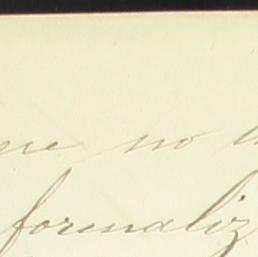 me no
formaliz